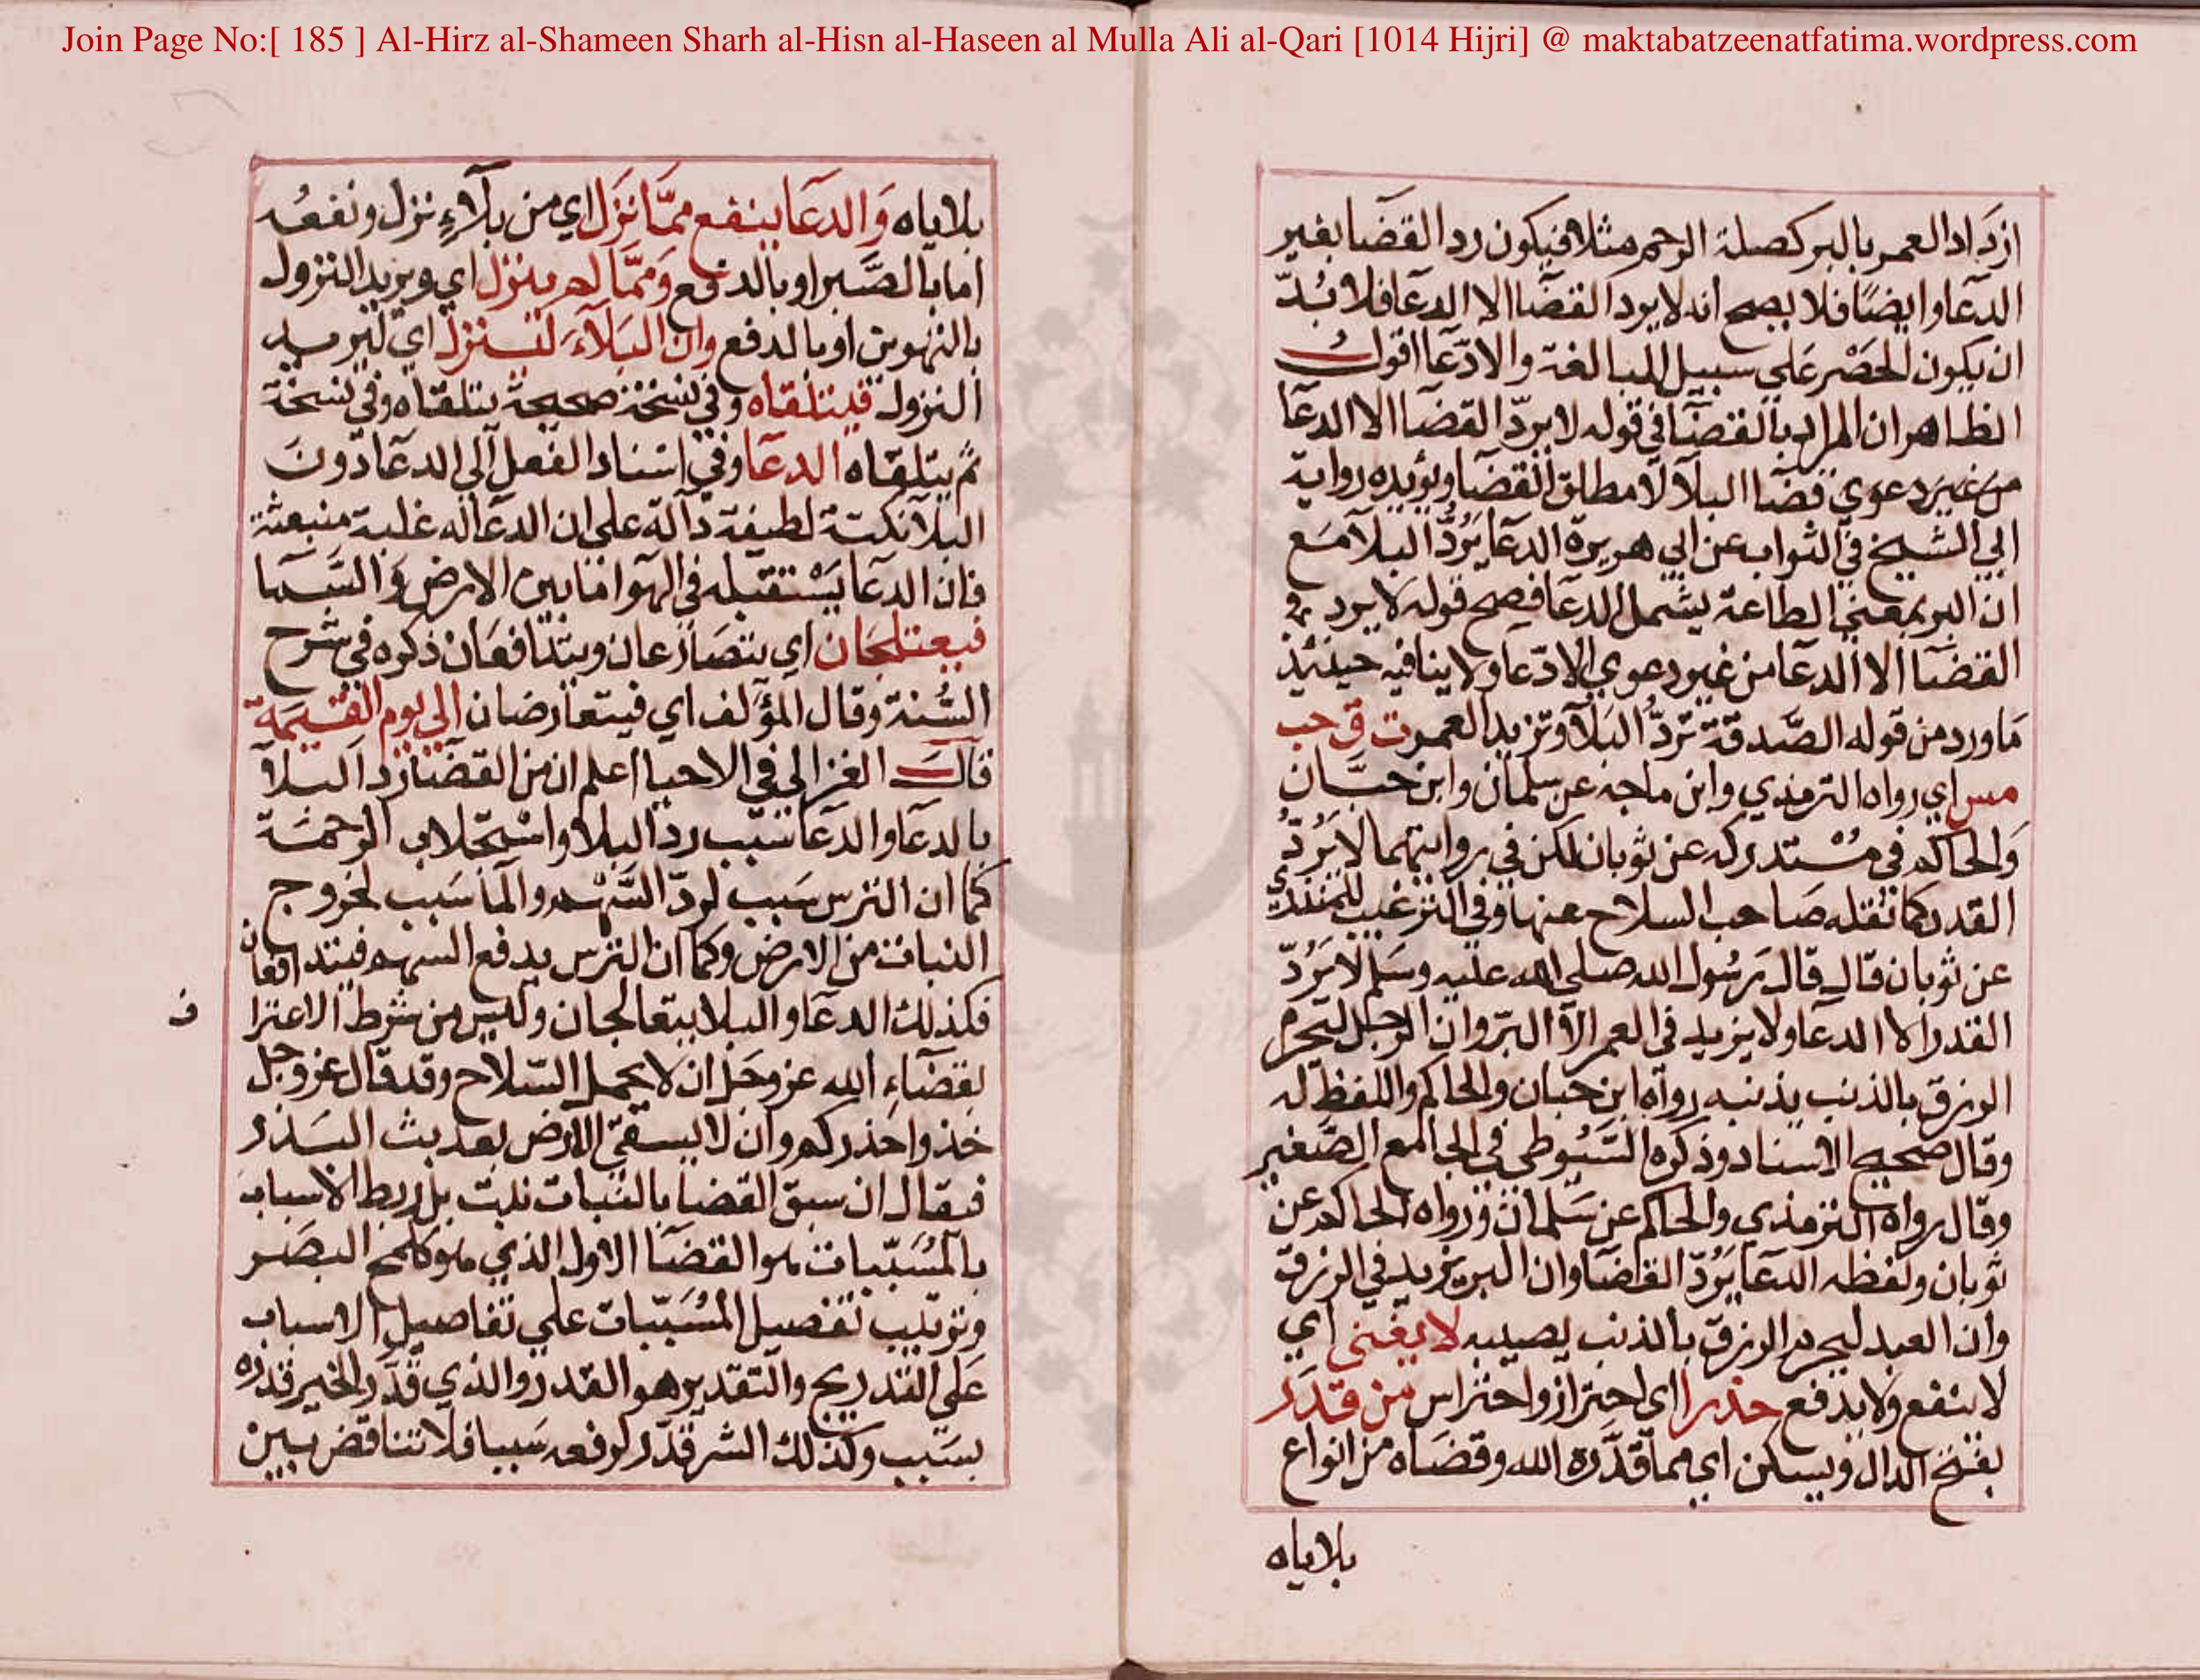 Join Page No:[ 185 ] Al-Hirz al-Shameen Sharh al-Hisn al-Haseen al Mulla Ali al-Qari [1014 Hijri] @ maktabatzeenatfatima.wordpress.com
ازداد العمر بالبر كصلة الرحم مثلا فيكون رد القضا بغير
الدعا وايضا فلا يصح انه لا يرد القضا الا الدعا فلا بُدّ
ان يكون الحصر علي سبيل المبالغة والادّعا اقول
الظاهر ان المراد بالقضا في قوله لا يردّ القضا الا الدعا
من غير دعوي قضا البلا لا مطلق القضا ويؤيده رواية
ابي الشيخ في الثواب عن ابي هريرة الدعا يَرُدُّ البلا مع
ان البر بمعني الطاعة يشمل الدعا فيصح قوله لا يرد
القضا الا الدعا من غير دعوي الادّعا ولا ينافيه حينئذ
ما ورد من قوله الصَّدقة تردُّ البلا وتزيد العمر ت ق حب
مس اي رواه الترمذي وابن ماجه عن سلمان وابن حبَّان
والحاكم في مُستدركه عن ثوبان لكن في روايتهما لا يَرُدُّ
القدر كما نقله صاحب السلاح عنها وفي الترغيب للمنذري
عن ثوبان قال قال رسُول الله صلى الله عليه وسلم لا يَرُدّ
القدر الا الدعا ولا يزيد في العمر الا البرّ وان الرجل ليحرم
الرزق بالذنب يذنبه رواه ابن حبان والحاكم واللفظ له
وقال صحيح الاسناد وذكره السَّيُوطي في الجامع الصَّغير
وقال رواه الترمذي والحاكم عن سَلمان ورواه الحاكم عن
ثوبان ولفظه الدعا يَرُدّ القضا وان البر يزيد في الرزق
وان العبد ليحرم الرزق بالذنب يصيبه لا يغني اي
لا ينفع ولا يدفع حذر اي احتراز واحتراس من قدر
بفتح الدال ويسكن اي مما قَدَّره الله وقضاه من انواع
بلاياه
بلاياه وَالدعَا ينفع ممَّا نَزَل اي من بلاءٍ نزل ونفعُه
اما بالصَّبر او بالدفع وَممَّا لم ينزل اي ويريد النزول
بالتهوين او بالدفع وان البَلاءَ لينزل اي ليريد
النزول فيتلقاه وفي نسخة صحيحة يتلقاه وفي نسخة
ثم يتلقاه الدعا وفي اسناد الفعل الي الدعا دون
البلا نكتة لطيفة دالة علي ان الدعا له غلبة منبعثة
فان الدعا يَسْتقبله في الهوا مابين الارض والسَّما
فيعتلجان اي يتصَارعان ويتدافعان ذكره في شرح
السُّنة وقال المؤلف اي فيتعارضان الي يوم القيمة
قال الغزالي في الاحيا اعلم ان من القضا رد البلا
بالدعا والدعا سَبب رد البلا واستجلاب الرحمة
كما ان الترس سَبب لردّ السَّهم والما سَبب لخروج
النبات من الارض وكما ان الترس يدفع السهم فيتدافعان
فكذلك الدعا والبلا يتعالجان وليس من شرط الاعترا
ف
بقضاءِ الله عز وجَل ان لا يحمل السّلاح وقد قال عز وجل
خذوا حذركم وان لا يسقي الارض بعد بث البَذر
فيقال ان سبق القضا بالنبات نبت بل ربط الاسباب
بالمُسَبّبات هو القضا الاول الذي هو كلمح البصَر
وترتيب تفصيل المُسَبّبات علي تفاصيل الاسباب
عَلي التدريج والتقدير هو القدر والذي قَدَّر الخير قدره
بسَبب وكذلك الشر قدّر لرفعه سَببا فلا تناقض بين